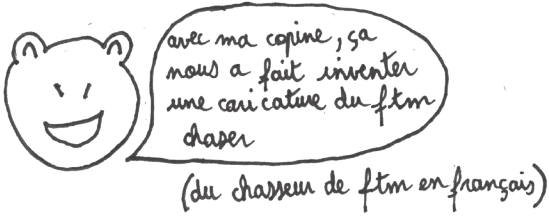 avec ma copine, ça
nous a fait inventer
une caricature du ftm
chaser
(du chasseur de ftm en français)